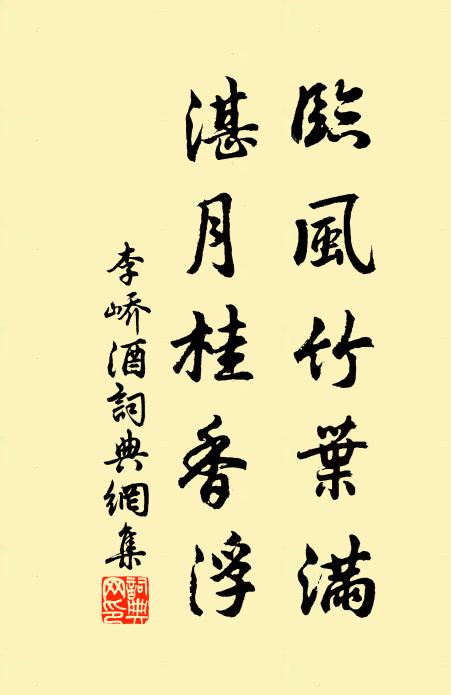 臨風竹葉滿
湛月桂香浮
李嶠酒詞典網集
詞典網印